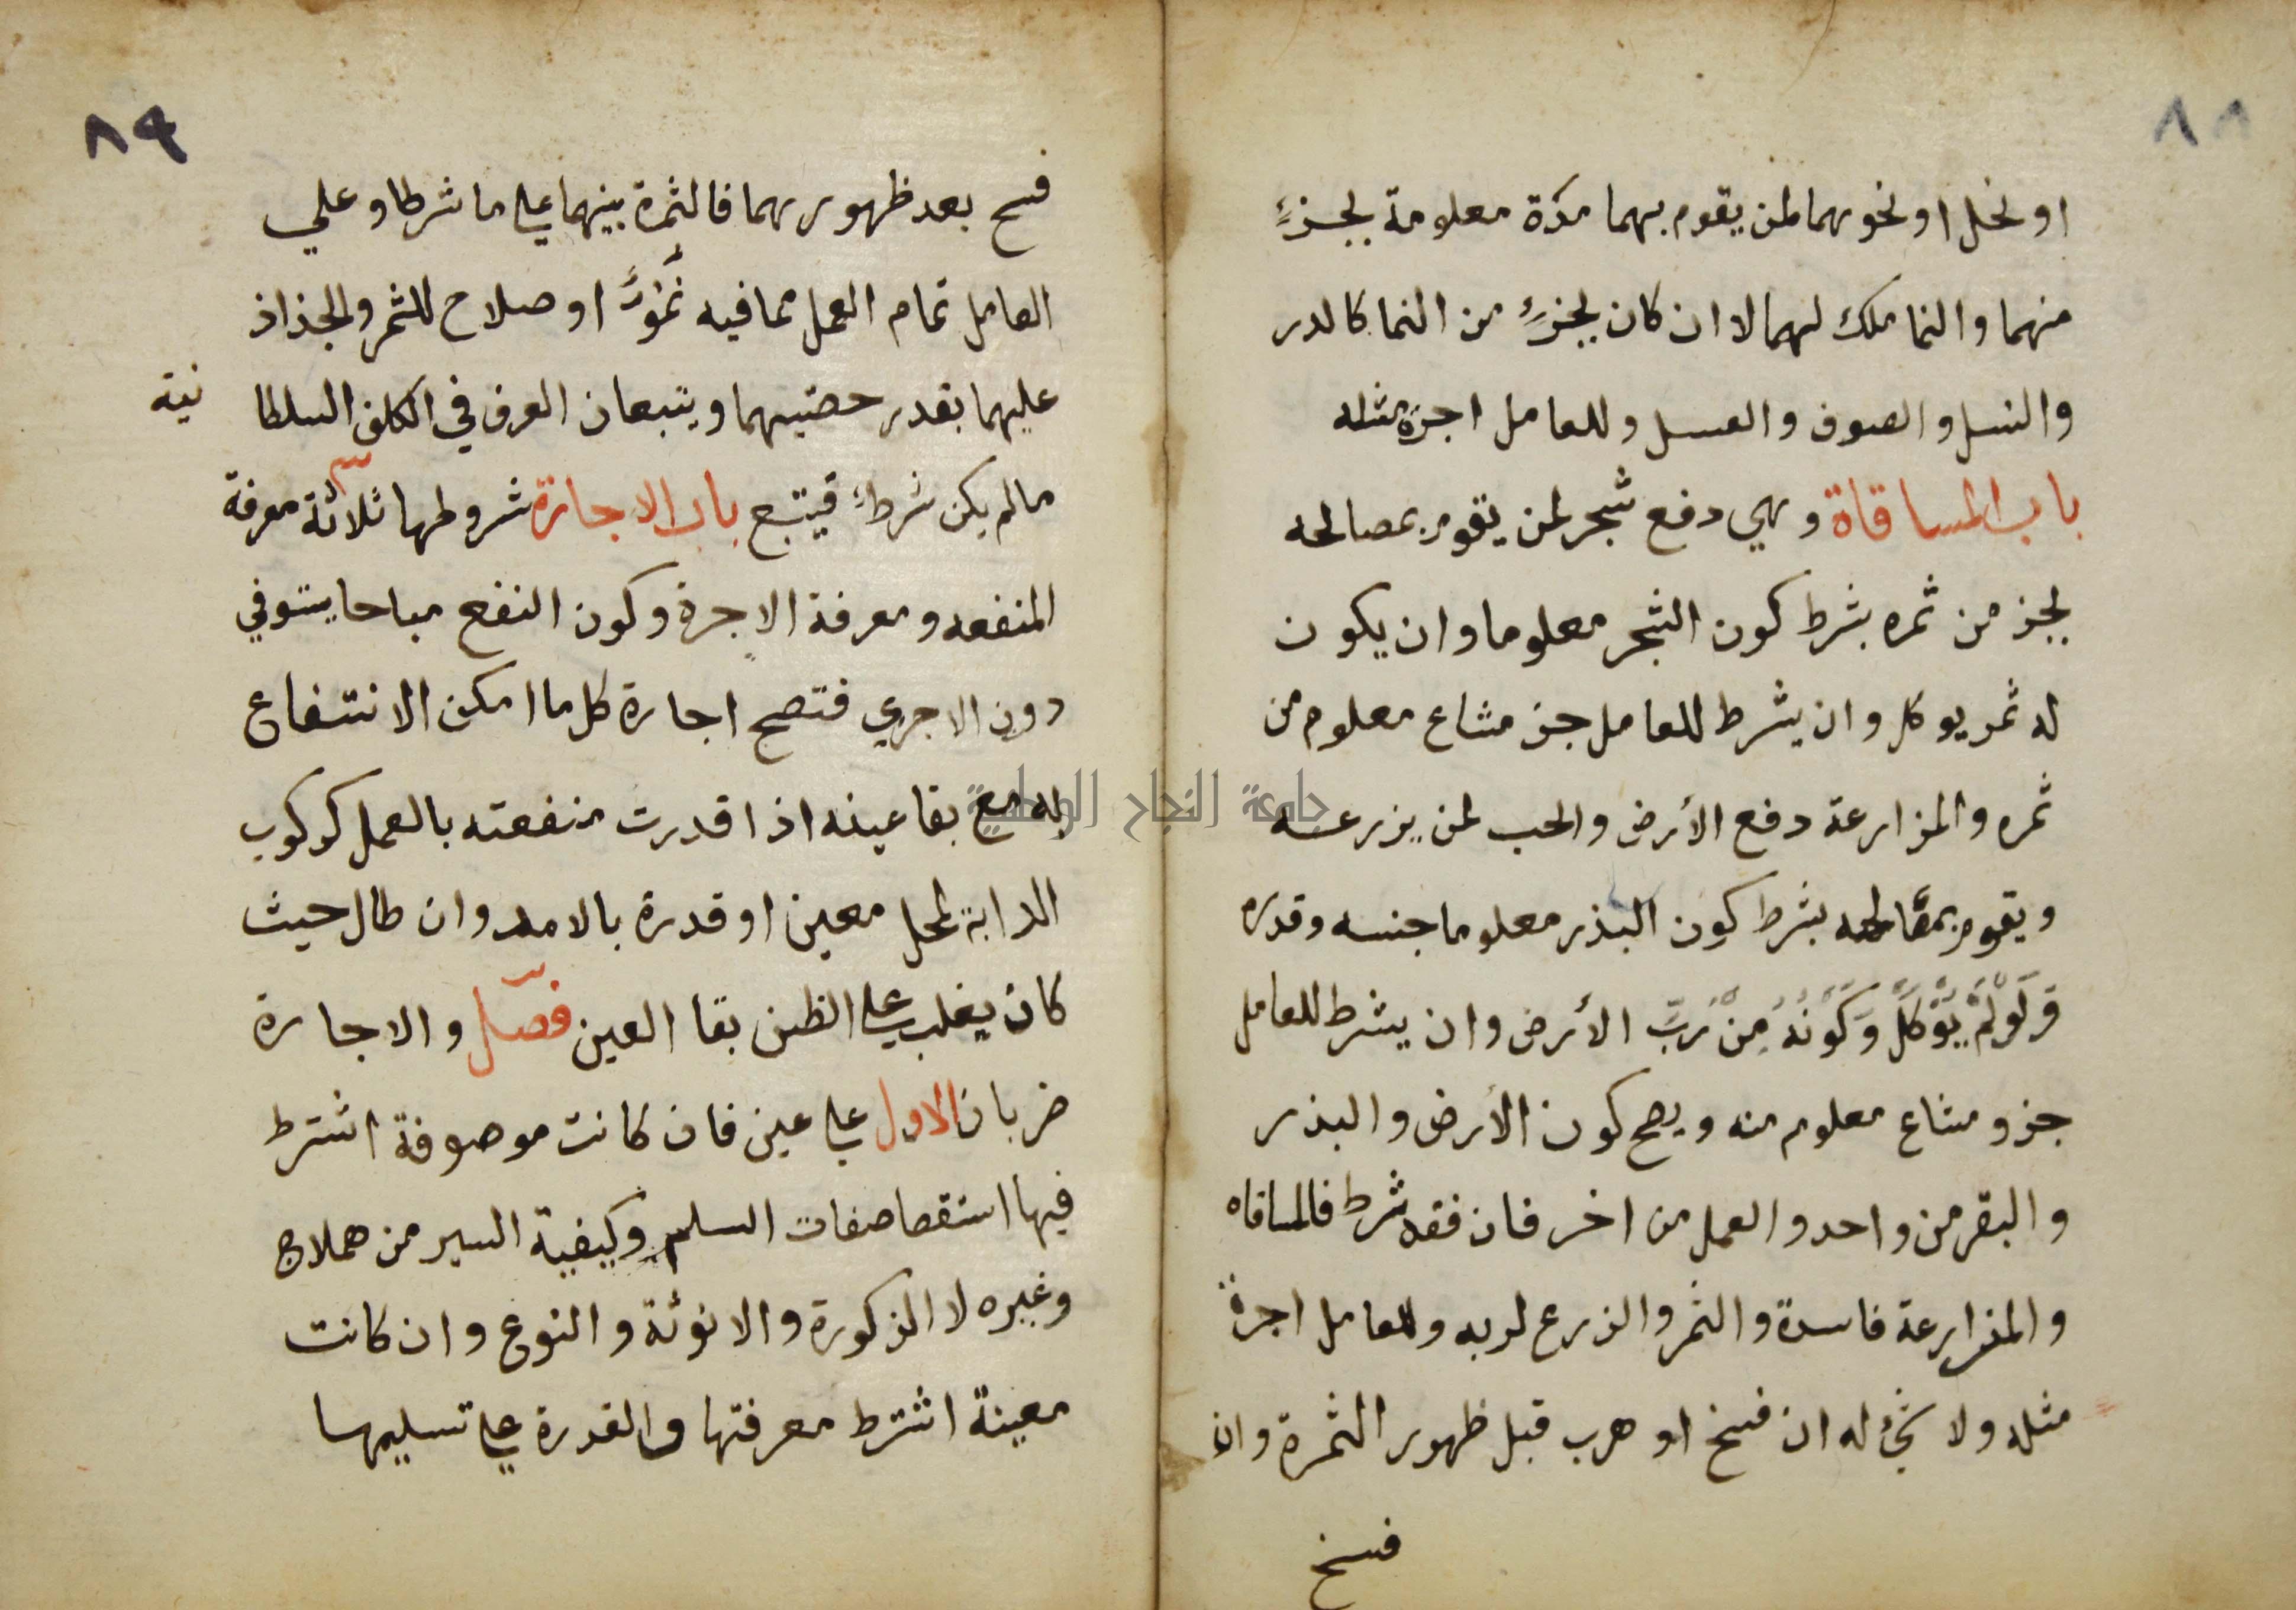 ٨٨
او نخل او نحوهما لمن يقوم بهما مدة معلومة بجزءٍ
منهما والنما ملك لهما لا ان كان بجزءٍ من النما كالدر
والنسل والصوف والعسل وللعامل اجرة مثله
باب المساقاة وهي دفع شجر لمن يقوم بمصالحه
بجز من ثمره بشرط كون الشجر معلوما وان يكون
له ثمر يوكل وان يشرط للعامل جز مشاع معلوم من
ثمره والمزارعة دفع الأرض والحب لمن يزرعه
ويقوم بمصالحه بشرط كون البذر معلوما جنسه وقدره
وَلَوْ لَمْ يُوْكَلْ وَكَوْنُهُ مِنْ رَبِّ الأرض وان يشرط للعامل
جزو مشاع معلوم منه ويصح كون الأرض والبذر
والبقر من واحد والعمل من اخر فان فقد شرط فالمساقاه
والمزارعة فاسدة والثمر والزرع لربه وللعامل اجرة
مثله ولا شئ له ان فسخ او هرب قبل ظهور الثمرة وان
فسخ
٨٩
فسخ بعد ظهورهما فالثمرة بينهما على ما شرطا وعلي
العامل تمام العمل مما فيه نُمُوٌّ او صلاح للثمر والجذاذ
عليهما بقدر حصتيهما ويتبعان العرف في الكلف السلطا نية
مالم يكن شرطٌ فيتبع باب الاجارة شروطها ثلاثة معرفة
المنفعه ومعرفة الاجرة وكون النفع مباحا يستوفي
دون الاجزي فتصح اجارة كل ما امكن الانتفاع
به مع بقا عينه اذا قدرت منفعته بالعمل كركوب
الدابة لمحل معين او قدرة بالامد وان طال حيث
كان يغلب على الظن بقا العين فصل والاجارة
ضربان الاول على عين فان كانت موصوفة اشترط
فيها استقصا صفات السلم وكيفية السير من هملاج
وغيره لا الذكورة والانوثة والنوع وان كانت
معينة اشترط معرفتها والقدرة على تسليمها
جامعة النجاح الوطنية